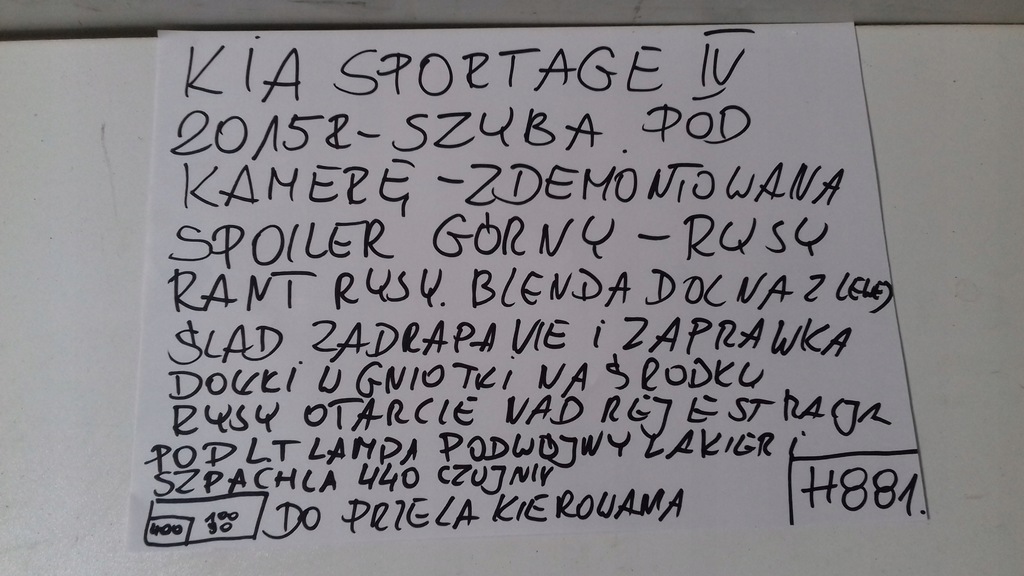 KIA SPORTAGE IV
2015R - SZYBA. POD
KAMERĘ - ZDEMONTOWANA
SPOILER GÓRNY - RYSY
RANT RYSY. BLENDA DOLNA Z LEWEJ
ŚLAD ZADRAPANIE i ZAPRAWKA
DOŁKI UGNIOTKI NA ŚRODKU
RYSY OTARCIE NAD REJESTRACJA
POD LT LAMPA PODWÓJNY LAKIER i
SZPACHLA 440 CZUJNIK
400 100 50 DO PRZELAKIEROWANIA
H881.